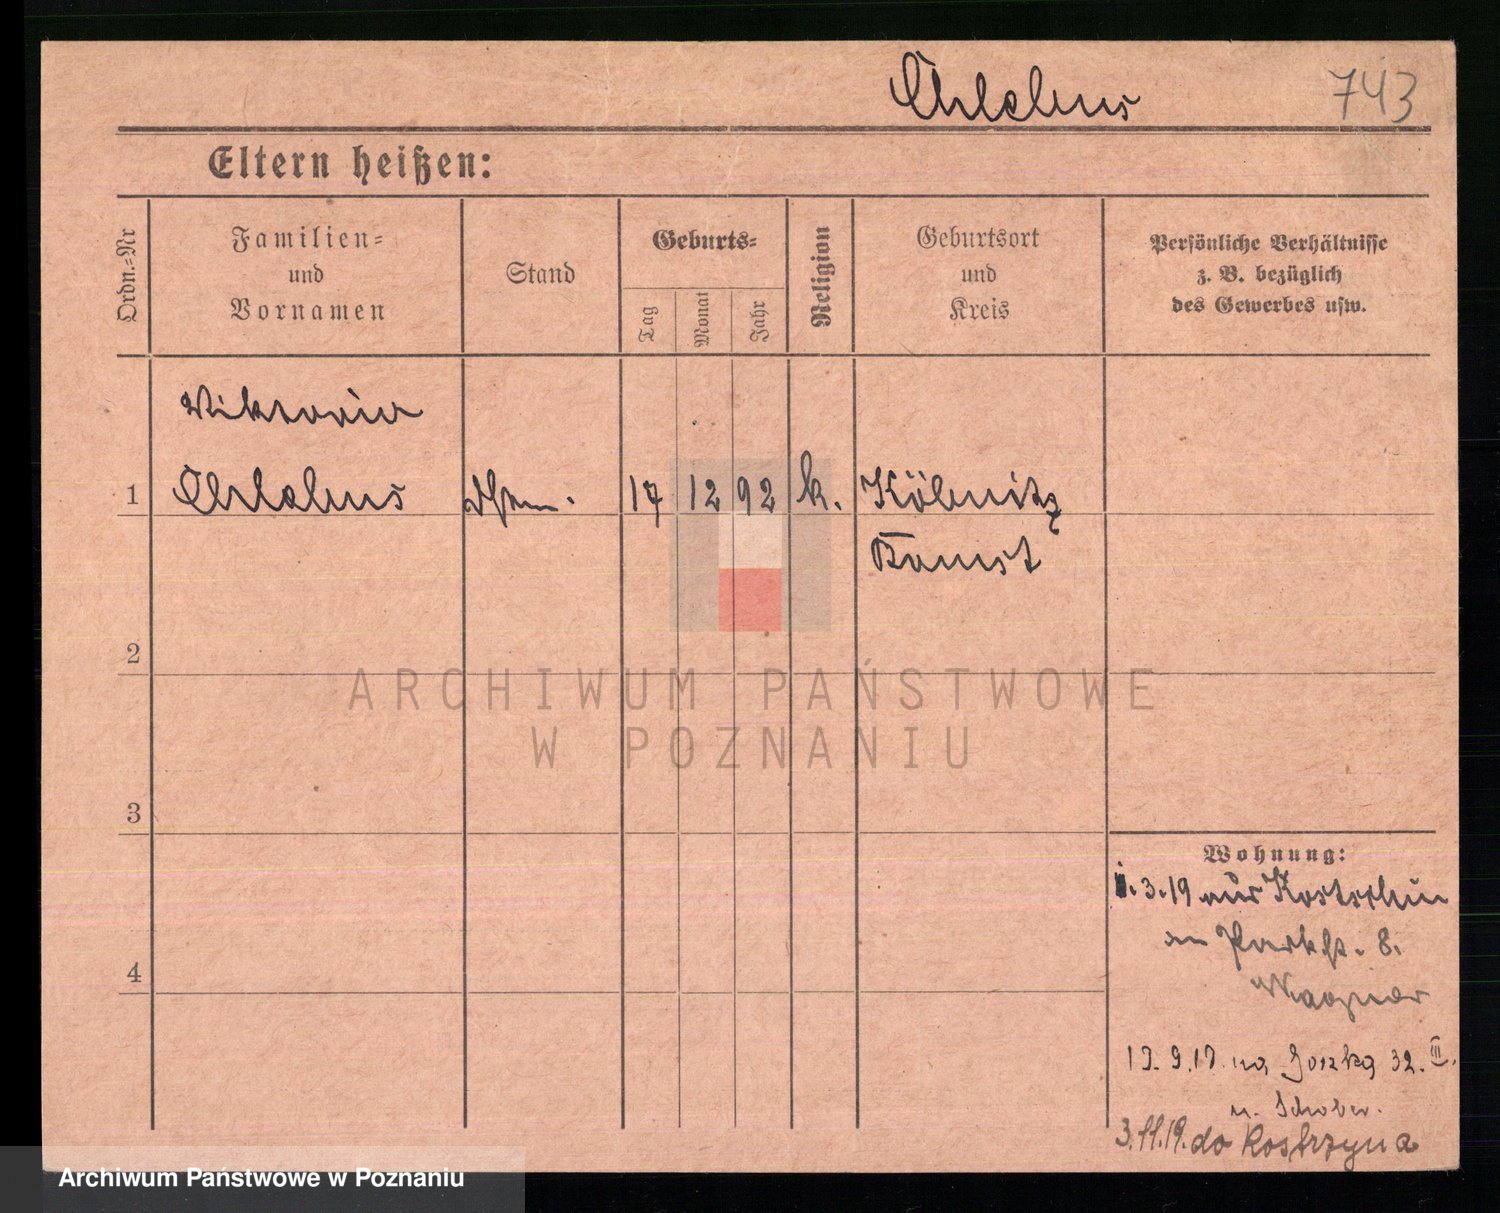 Chlebus 743
Eltern heißen:
Ordn.=Nr
Familien=
und
Vornamen
Stand
Geburts=
Tag
Monat
Jahr
Religion
Geburtsort
und
Kreis
Persönliche Verhältnisse
z. B. bezüglich
des Gewerbes usw.
Viktoria
1 Chlebus 17 12 92 k. Köbnitz
Bomst
2
3
4
Wohnung:
.3.19 aus Kostschin
Parkstr. 8.
Wagner
19.9.19. na Gorzką 32. III.
u. Schober.
3.11.19. do Kostrzyna
ARCHIWUM PAŃSTWOWE
W POZNANIU
Archiwum Państwowe w Poznaniu